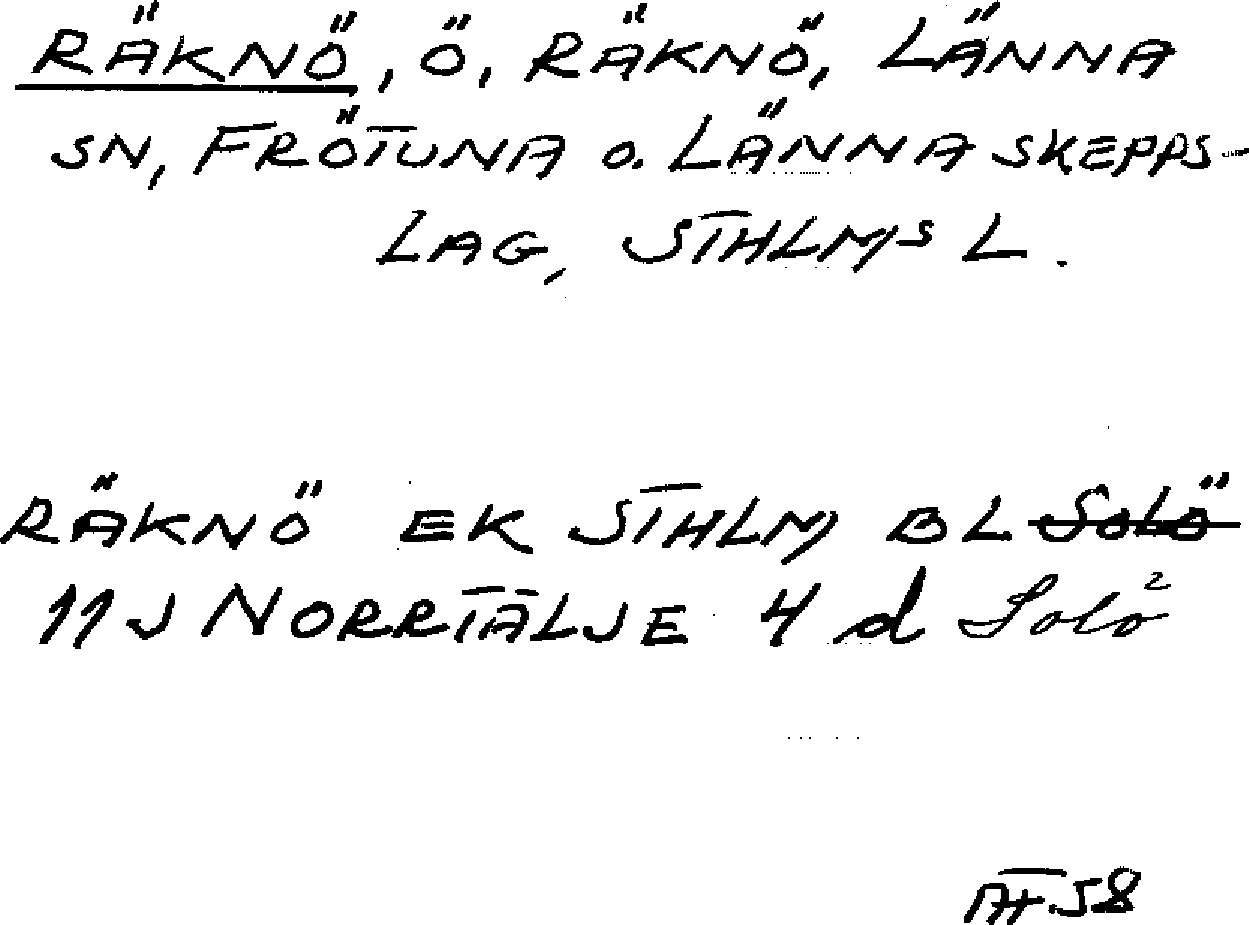 RÄKNÖ, Ö, RÄKNÖ, LÄNNA
SN, FRÖTUNA O. LÄNNA SKEPPS-
LAG, STHLMS L.
RÄKNÖ EK STHLM BL Solö
11J NORRTÄLJE 4 d Solö
AT.58